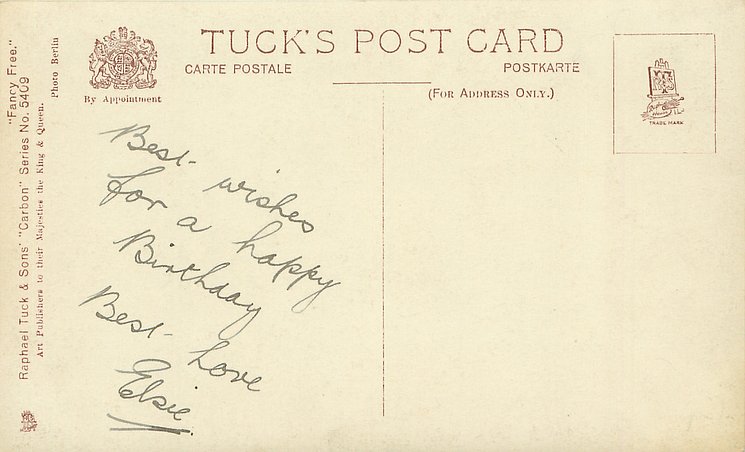 TUCK'S POST CARD
CARTE POSTALE
POSTKARTE
(FOR ADDRESS ONLY.)
By Appointment
TRADE MARK
"Fancy Free."
Photo Berlin
Raphael Tuck & Sons' "Carbon" Series No. 5409
Art Publishers to their Majesties the King & Queen.
Best wishes
for a happy
Birthday
Best Love
Elsie.